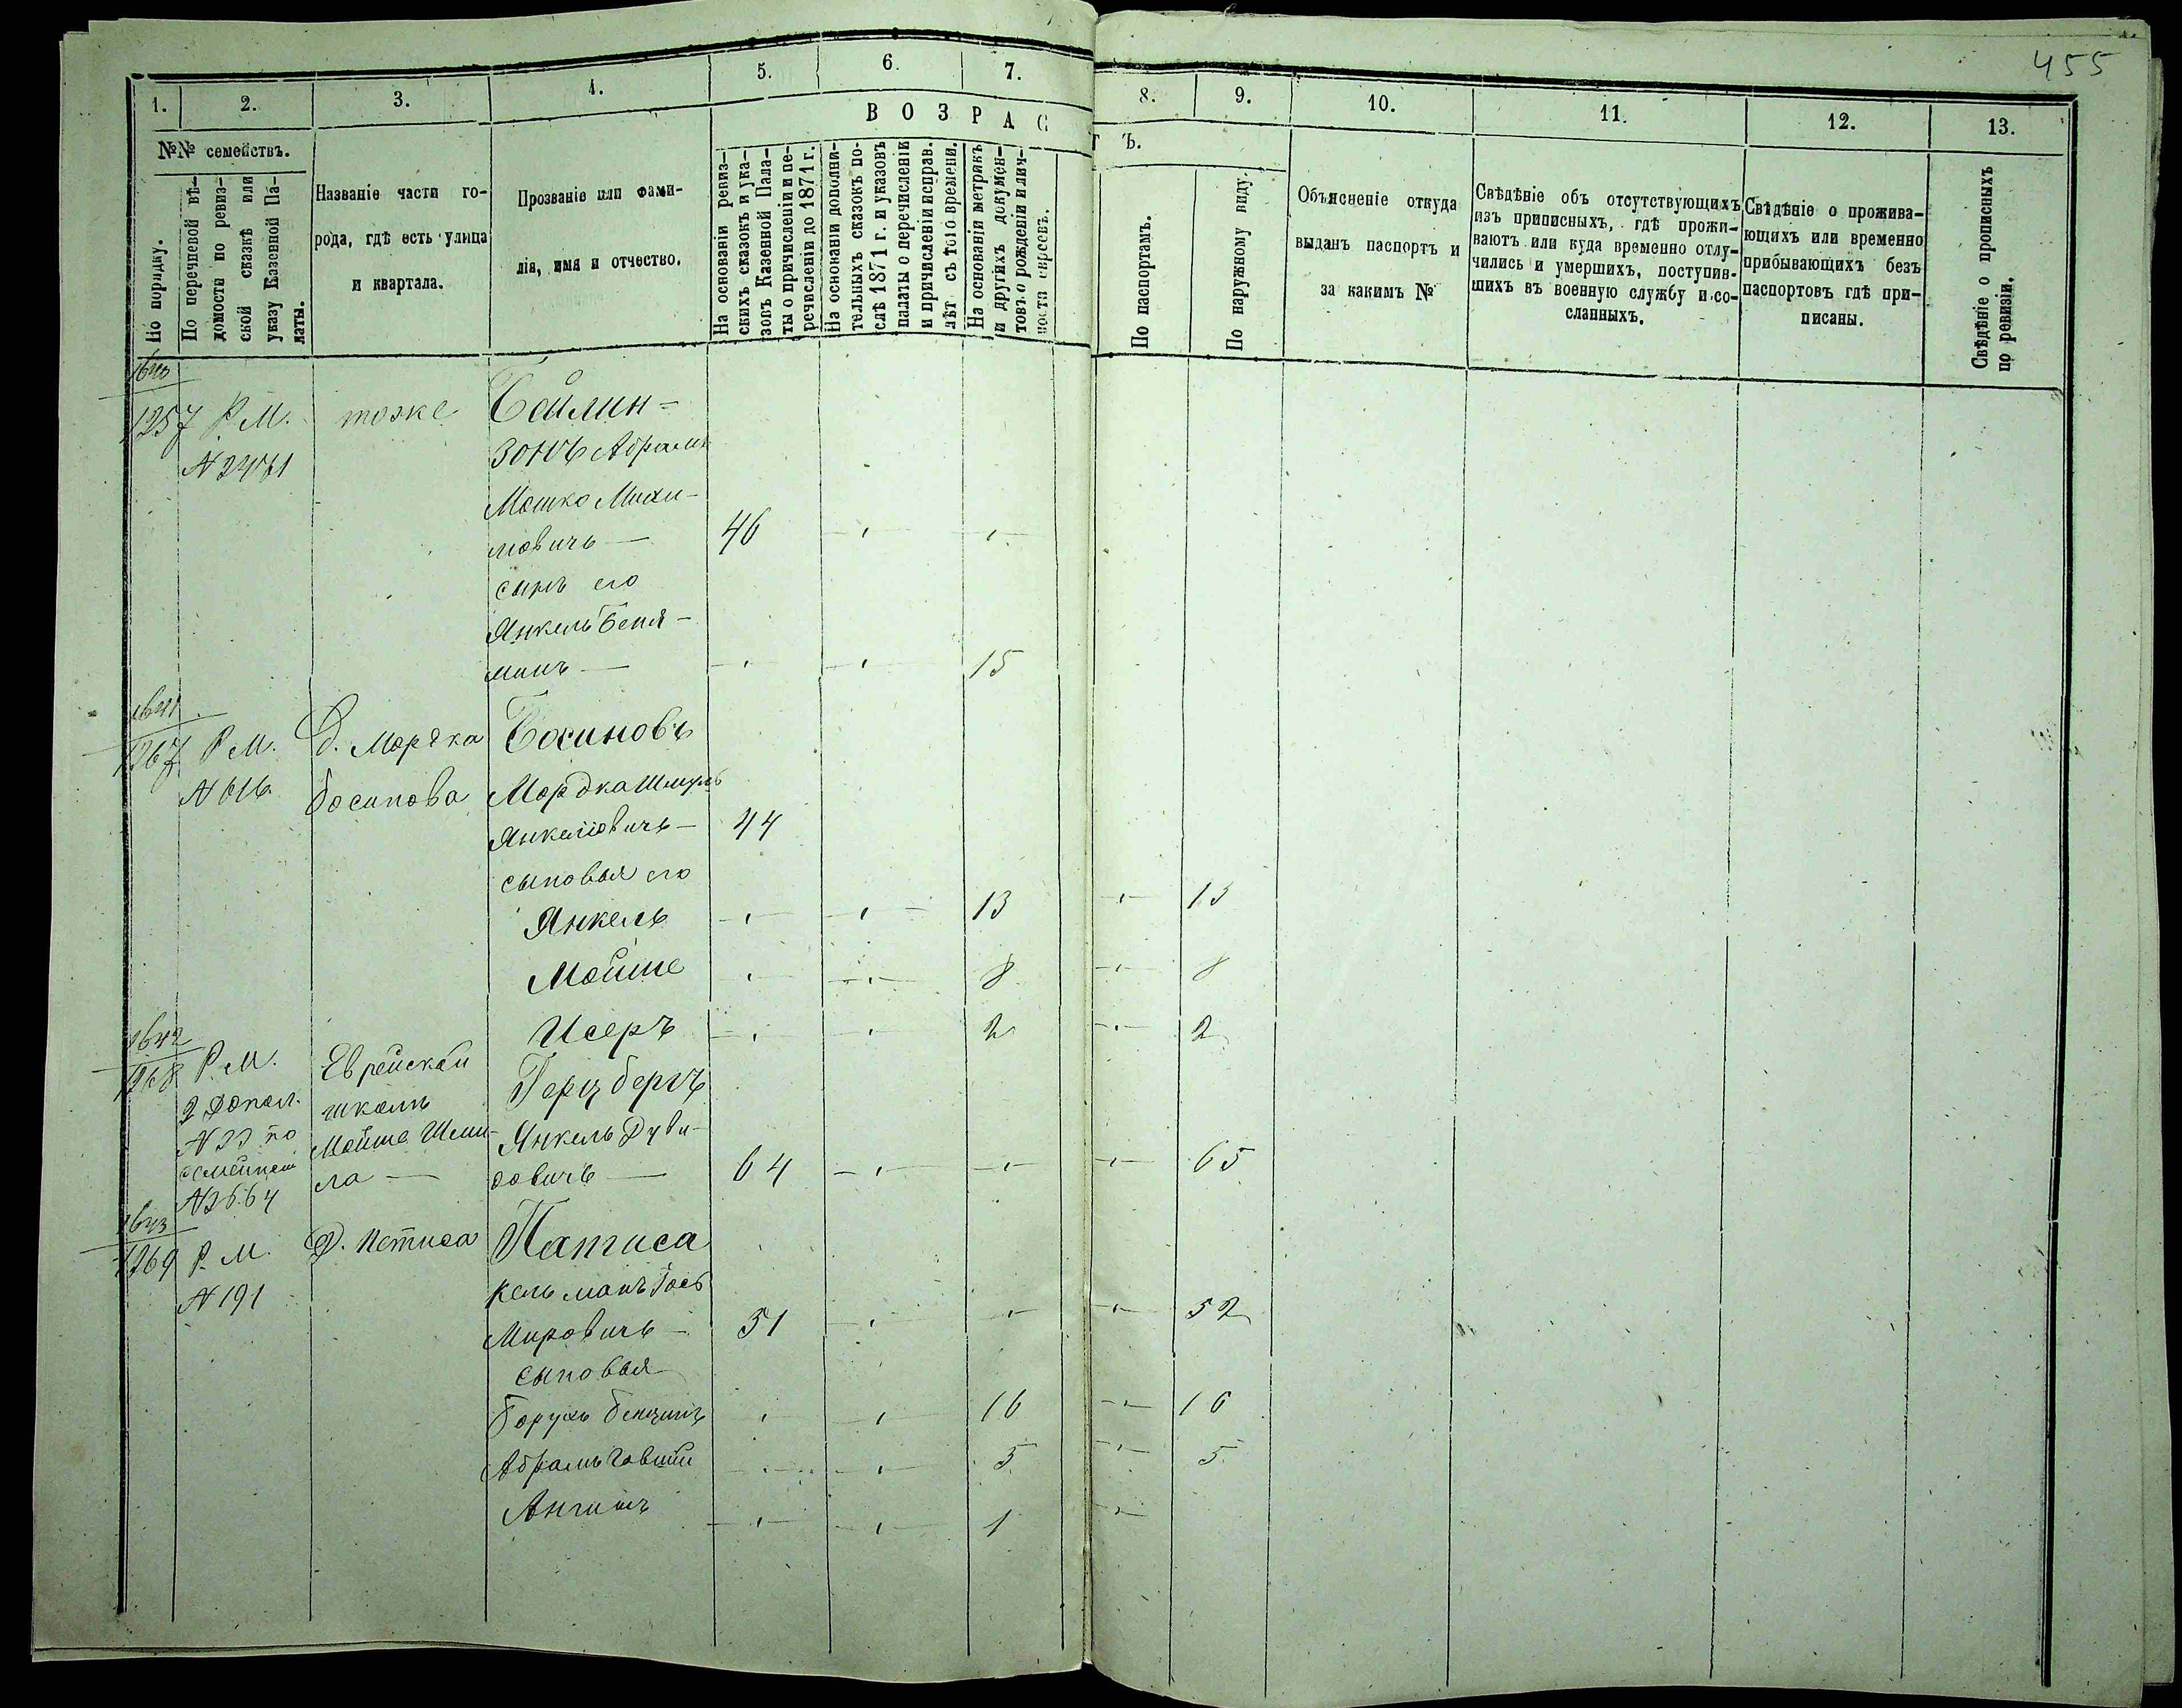 455
1. 2. 3. 4. 5. 6. 7. 8. 9. 10. 11. 12. 13.
№№ семействъ.
По порядку.
По перечневой вѣ-
домости по ревиз-
ской сказкѣ или
указу Казенной Па-
латы.
Названіе части го-
рода, гдѣ есть улица
и квартала.
Прозваніе или фами-
лія, имя и отчество.
ВОЗРАСТЪ.
На основаніи ревиз-
скихъ сказокъ и ука-
зовъ Казенной Пала-
ты о причисленіи и пе-
речисленіи до 1871 г.
На основаніи дополни-
тельныхъ сказокъ по-
слѣ 1871 г. и указовъ
палаты о перечисленіи
и причисленіи исправ.
лѣт съ того времени.
На основаніи метрикъ
и другихъ докумен-
товъ о рожденіи и лич-
ности евреевъ.
По паспортамъ.
По наружному виду.
Объясненіе откуда
выданъ паспортъ и
за какимъ №
Свѣдѣніе объ отсутствующихъ
изъ приписныхъ, гдѣ прожи-
ваютъ или куда временно отлу-
чились и умершихъ, поступив-
шихъ въ военную службу и со-
сланныхъ.
Свѣдѣніе о прожива-
ющихъ или временно
прибывающихъ безъ
паспортовъ гдѣ при-
писаны.
Свѣдѣніе о прописныхъ
по ревизіи.
1640
1257 Р. М. тоже Бейлин-
N 2461 зонъ Абрамъ
Мошко
мовичъ — 46
сынъ его
Янкель Беня-
минъ — 15
1641
1267 Р. М. Д. Мордка Босиновъ
N 616 Босинова Мордка Шмуль
Янкеліовичъ — 44
сыновья его
Янкель 13 13
Мойше 8 8
Исеръ 2 2
1642
1268 Р. М. Еврейской Герцбергъ
2 допол. школы
по Мойше Янкель
довичъ — 64 65
1643
1269 Р. М. Д. Патиса
N 191 Кельманъ
Мировичъ — 51 52
сыновья
Борухъ 16 16
Абрамъ 5 5
1